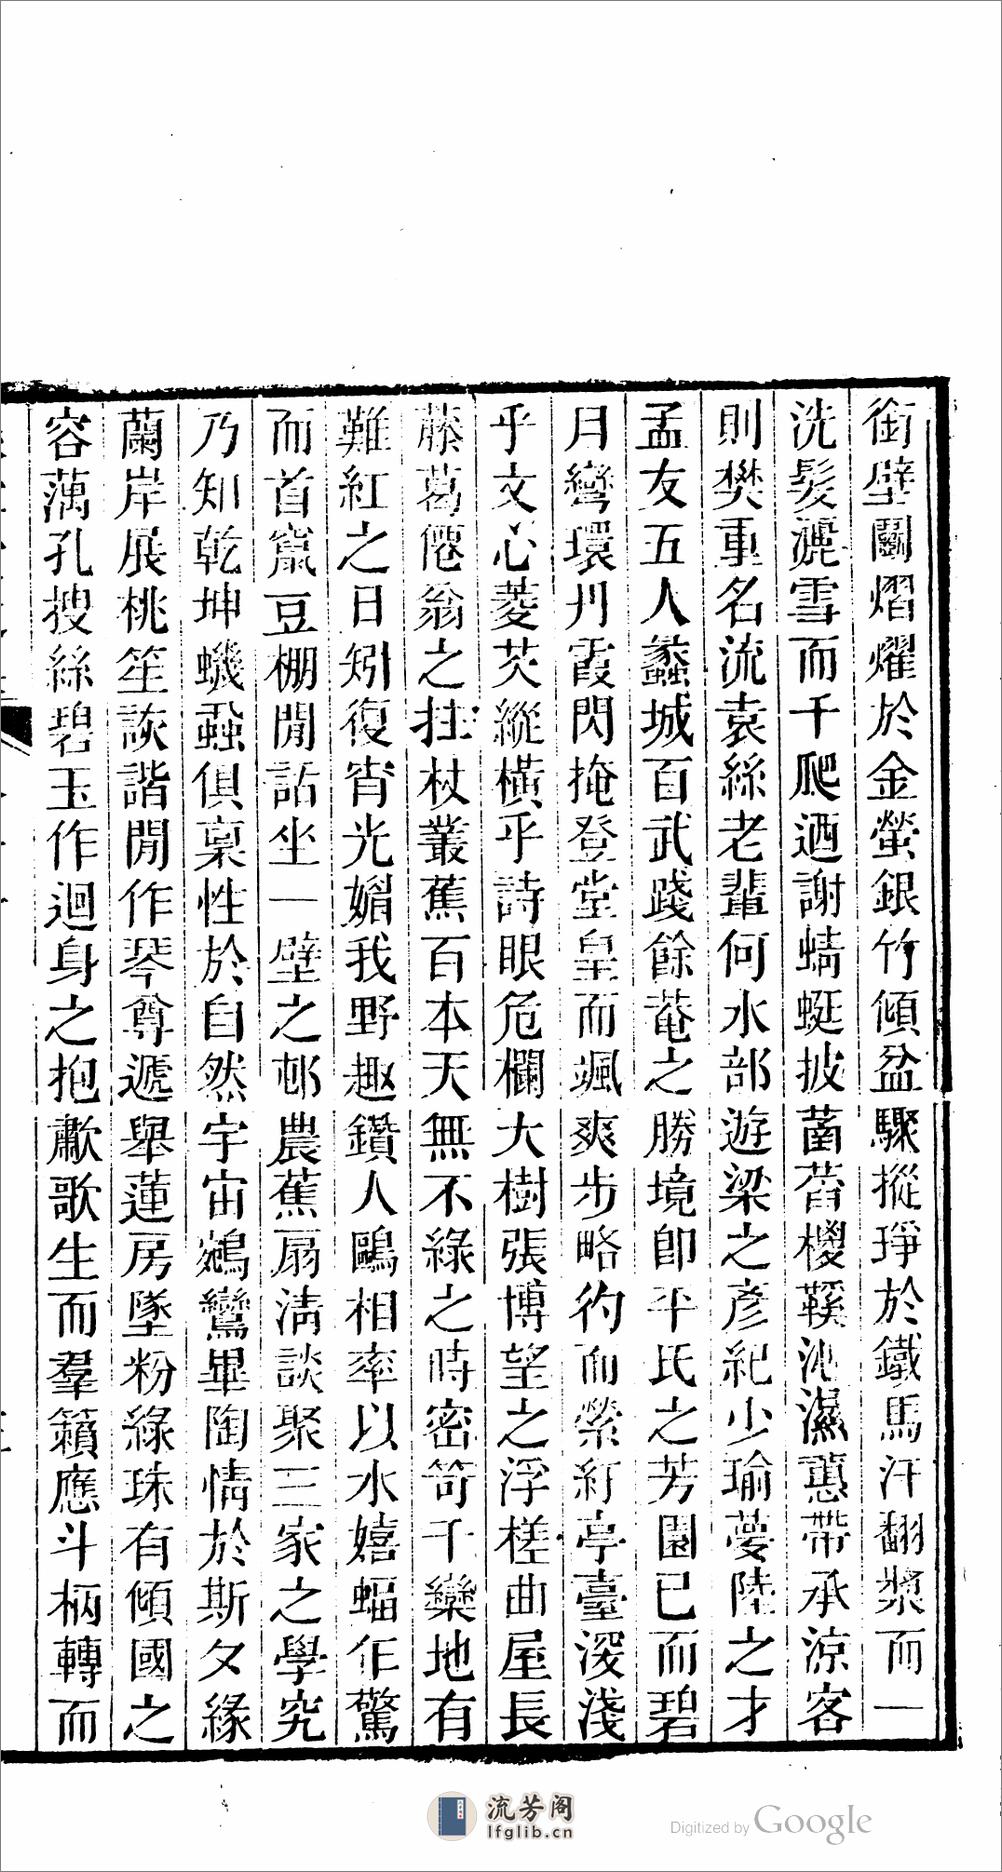 銜壁闘熠燿於金螢銀竹傾盆驟摐琤於鐵馬汗翻漿而一
洗髮灑雪而千爬迺謝蜻蜓披菡萏櫻鞵沁濕蕙帶承涼客
則樊重名流袁絲老輩何水部遊梁之彥紀少瑜夢陸之才
孟友五人蠡城百武踐餘菴之勝境卽平氏之芳園已而碧
月彎環丹霞閃掩登堂皇而颯爽步略彴而縈紆亭臺深淺
乎文心菱芡縱橫乎詩眼危欄大樹張博望之浮槎曲屋長
藤葛僊翁之拄杖叢蕉百本天無不綠之時密笴千欒地有
難紅之日矧復宵光媚我野趣鑽人鷗相率以水嬉蝠乍驚
而首竄豆棚閒話坐一壁之邨農蕉扇淸談聚三家之學究
乃知乾坤蟣蝨俱稟性於自然宇宙鵷鸞畢陶情於斯夕緣
蘭岸展桃笙詼諧閒作琴尊遞舉蓮房墜粉綠珠有傾國之
容藕孔搜絲碧玉作迴身之抱歗歌生而羣籟應斗柄轉而
流芳阁
lfglib.cn
Digitized by Google